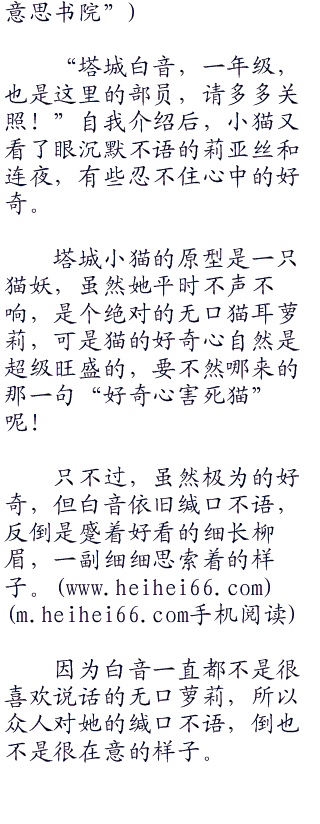 意思书院”)
“塔城白音，一年级，
也是这里的部员，请多多关
照！”自我介绍后，小猫又
看了眼沉默不语的莉亚丝和
连夜，有些忍不住心中的好
奇。
塔城小猫的原型是一只
猫妖，虽然她平时不声不
响，是个绝对的无口猫耳萝
莉，可是猫的好奇心自然是
超级旺盛的，要不然哪来的
那一句“好奇心害死猫”
呢！
只不过，虽然极为的好
奇，但白音依旧缄口不语，
反倒是蹙着好看的细长柳
眉，一副细细思索着的样
子。(www.heihei66.com)
(m.heihei66.com手机阅读)
因为白音一直都不是很
喜欢说话的无口萝莉，所以
众人对她的缄口不语，倒也
不是很在意的样子。